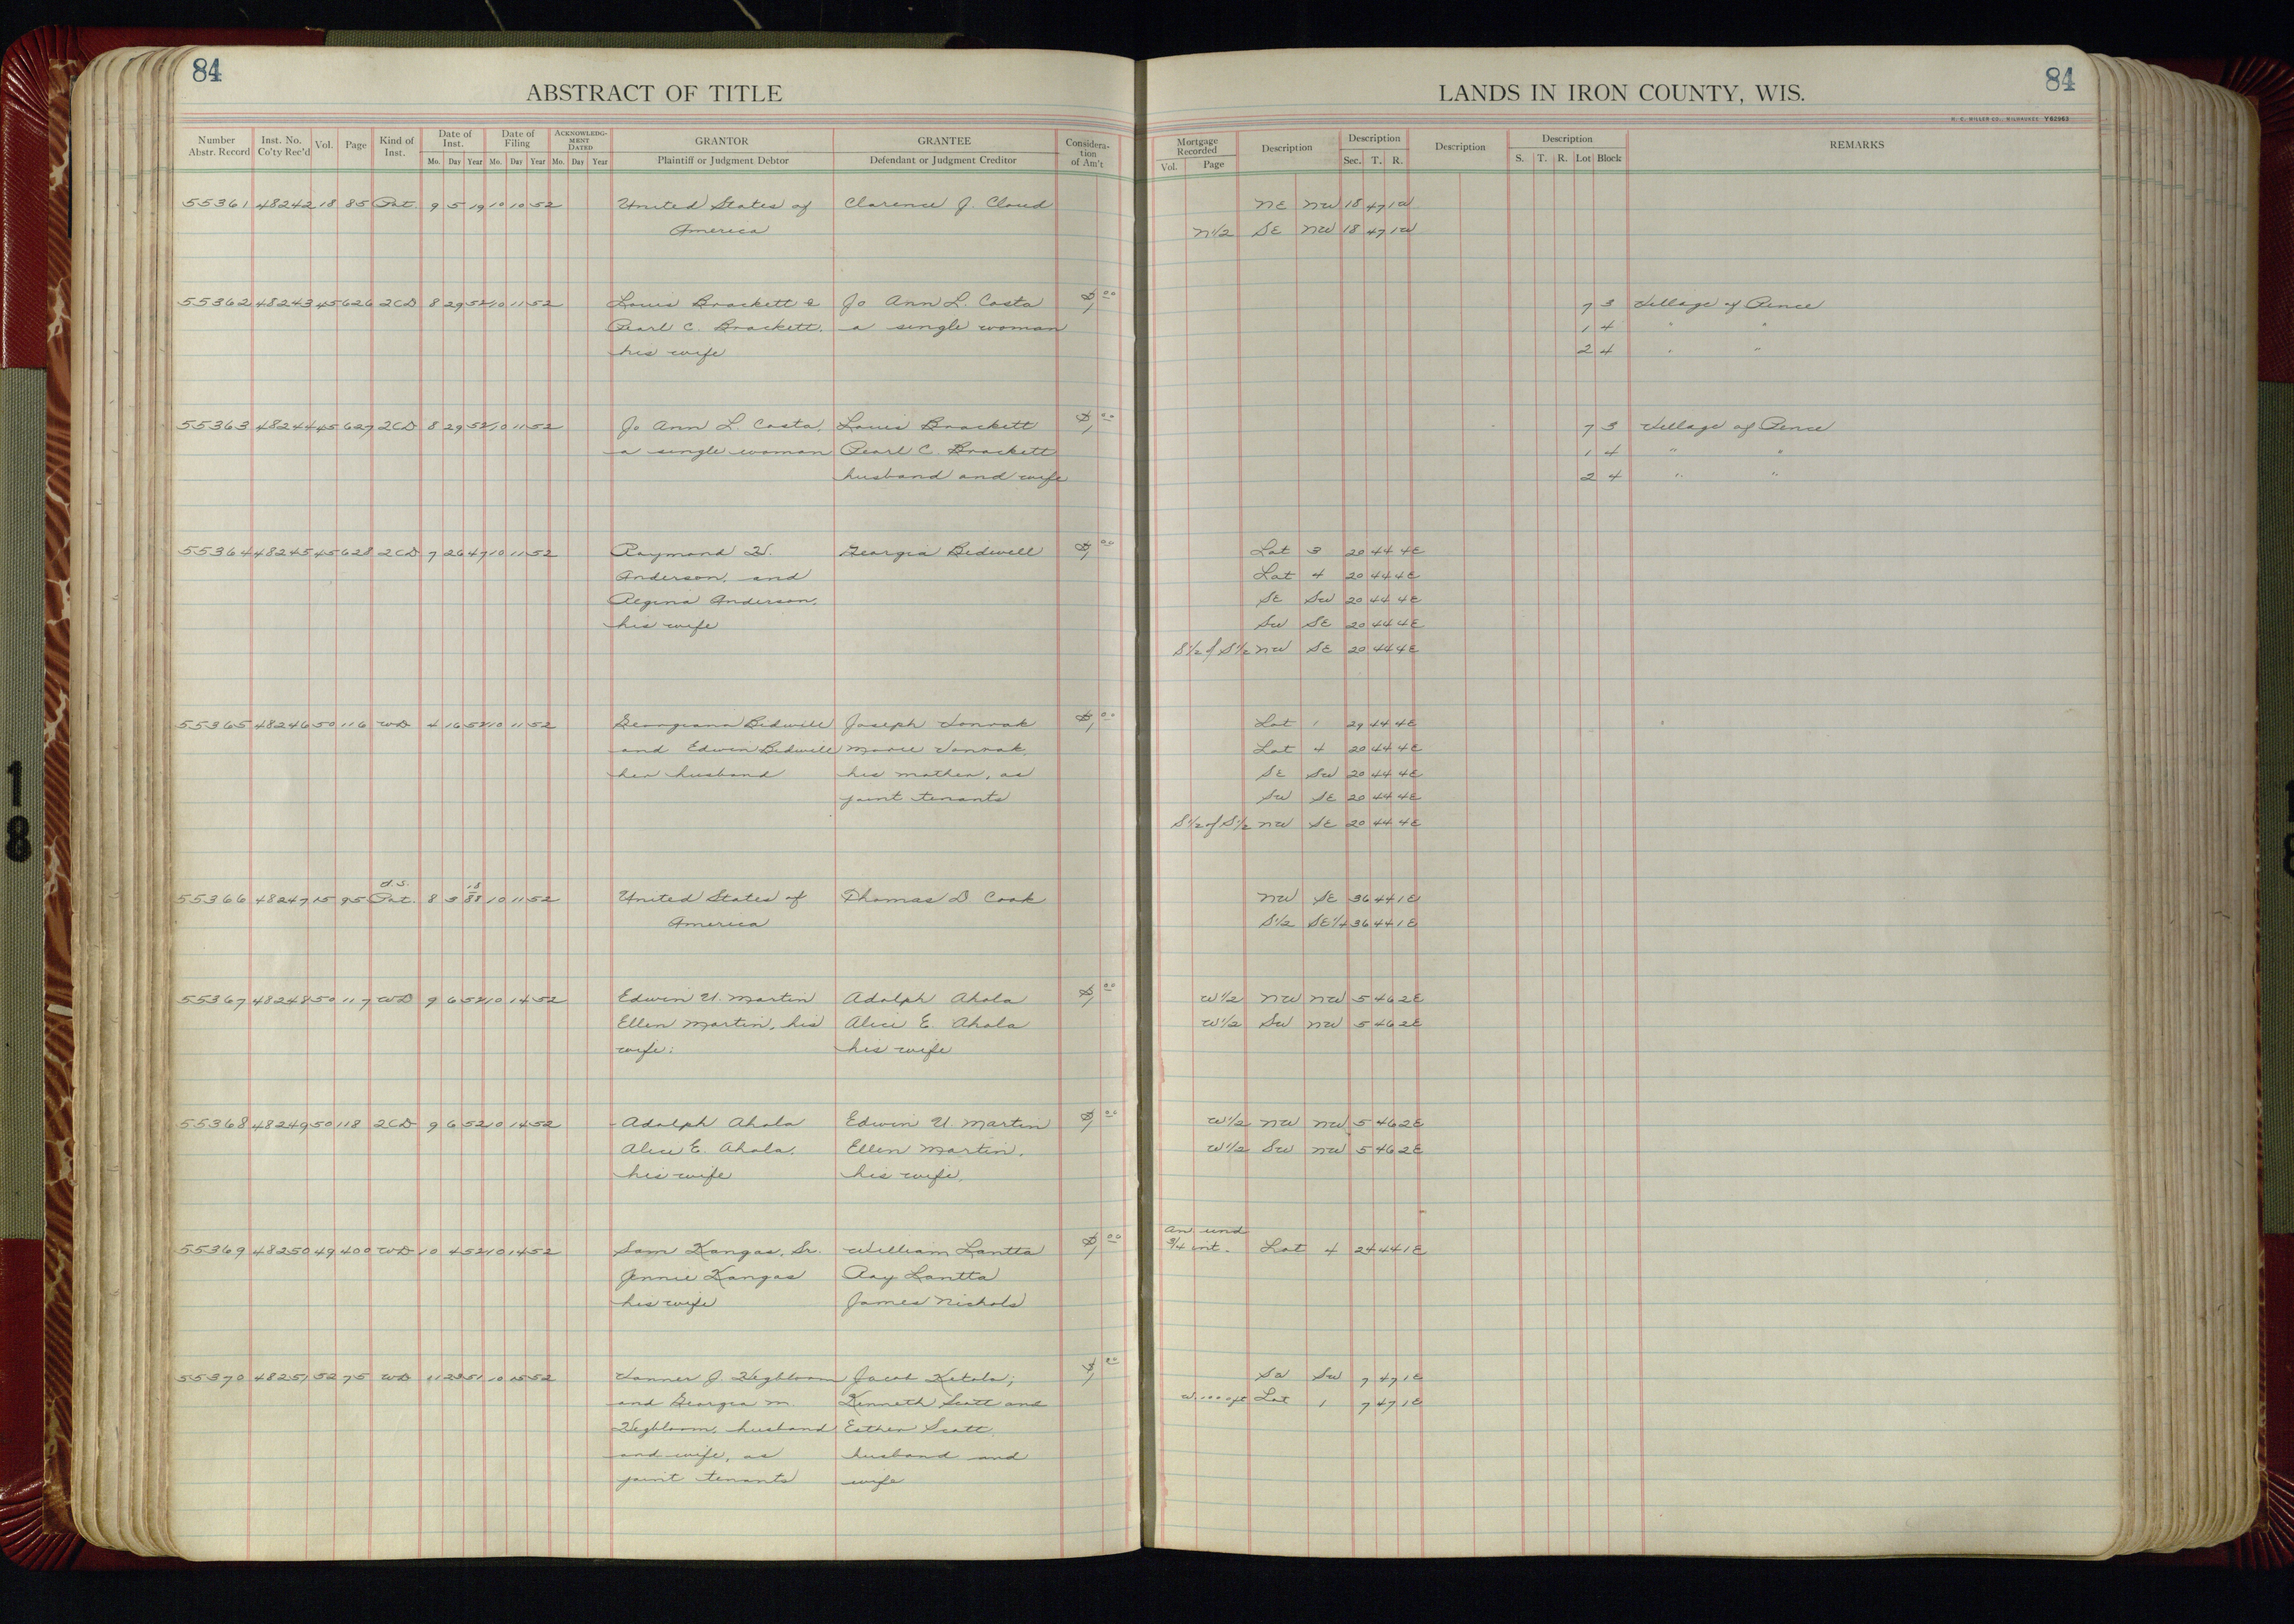 84
ABSTRACT OF TITLE
Number Abstr. Record Inst. No. Co'ty Rec'd Vol. Page Kind of Inst. Date of Inst. Mo. Day Year Date of Filing Mo. Day Year ACKNOWLEDGMENT DATED Mo. Day Year GRANTOR Plaintiff or Judgment Debtor GRANTEE Defendant or Judgment Creditor Consideration of Am't
55361 48242 18 85 Pat. 9 5 19 10 10 52 United States of Clarence J. Cloud
America
55362 48243 45 626 2CD 8 29 52 10 11 52 Louis Brackett & Jo Ann L. Costa $1.00
Pearl C. Brackett, a single woman
his wife
55363 48244 45 627 2CD 8 29 52 10 11 52 Jo Ann L. Costa, Louis Brackett $1.00
a single woman Pearl C. Brackett
husband and wife
55364 48245 45 628 2CD 7 26 47 10 11 52 Raymond W. Georgia Bidwell $1.00
Anderson, and
Regina Anderson,
his wife
55365 48246 50 116 WD 4 16 52 10 11 52 Georgiana Bidwell Joseph $1.00
and Edwin Bidwell Marie
her husband his mother, as
joint tenants
U.S.
55366 48247 15 95 Pat. 8 3 1888 10 11 52 United States of Thomas D Cook
America
55367 48248 50 117 WD 9 6 52 10 14 52 Edwin U. Martin Adolph Ahola $1.00
Ellen Martin, his Alice E. Ahola
wife. his wife
55368 48249 50 118 2CD 9 6 52 10 14 52 Adolph Ahola Edwin U. Martin $1.00
Alice E. Ahola, Ellen Martin,
his wife his wife,
55369 48250 49 400 WD 10 4 52 10 14 52 Sam Kangas, Sr. William Lantta $1.00
Jennie Kangas Ray Lantta
his wife James Nichols
55370 48251 52 75 WD 11 23 51 10 15 52 J. Hegbloom Jacob Ketola; $1.00
and Georgia M. Kenneth Scott and
Hegbloom, husband Esther Scott,
and wife, as husband and
joint tenants wife
84
LANDS IN IRON COUNTY, WIS.
H. C. MILLER CO., MILWAUKEE Y82963
Mortgage Recorded Vol. Page Description Description Sec. T. R. Description Description S. T. R. Lot Block REMARKS
NE NW 18 47 1W
N1/2 SE NW 18 47 1W
7 3 Village of Pence
1 4 " "
2 4 " "
7 3 Village of Pence
1 4 " "
2 4 " "
Lot 3 20 44 4E
Lot 4 20 44 4E
SE SW 20 44 4E
SW SE 20 44 4E
S1/2 of S1/2 NW SE 20 44 4E
Lot 1 29 44 4E
Lot 4 20 44 4E
SE SW 20 44 4E
SW SE 20 44 4E
S1/2 of S1/2 NW SE 20 44 4E
NW SE 36 44 1E
S1/2 SE1/4 36 44 1E
W1/2 NW NW 5 46 2E
W1/2 SW NW 5 46 2E
W1/2 NW NW 5 46 2E
W1/2 SW NW 5 46 2E
An und
3/4 int. Lot 4 24 44 1E
SW 7 47 1E
Lot 1 7 47 1E
18